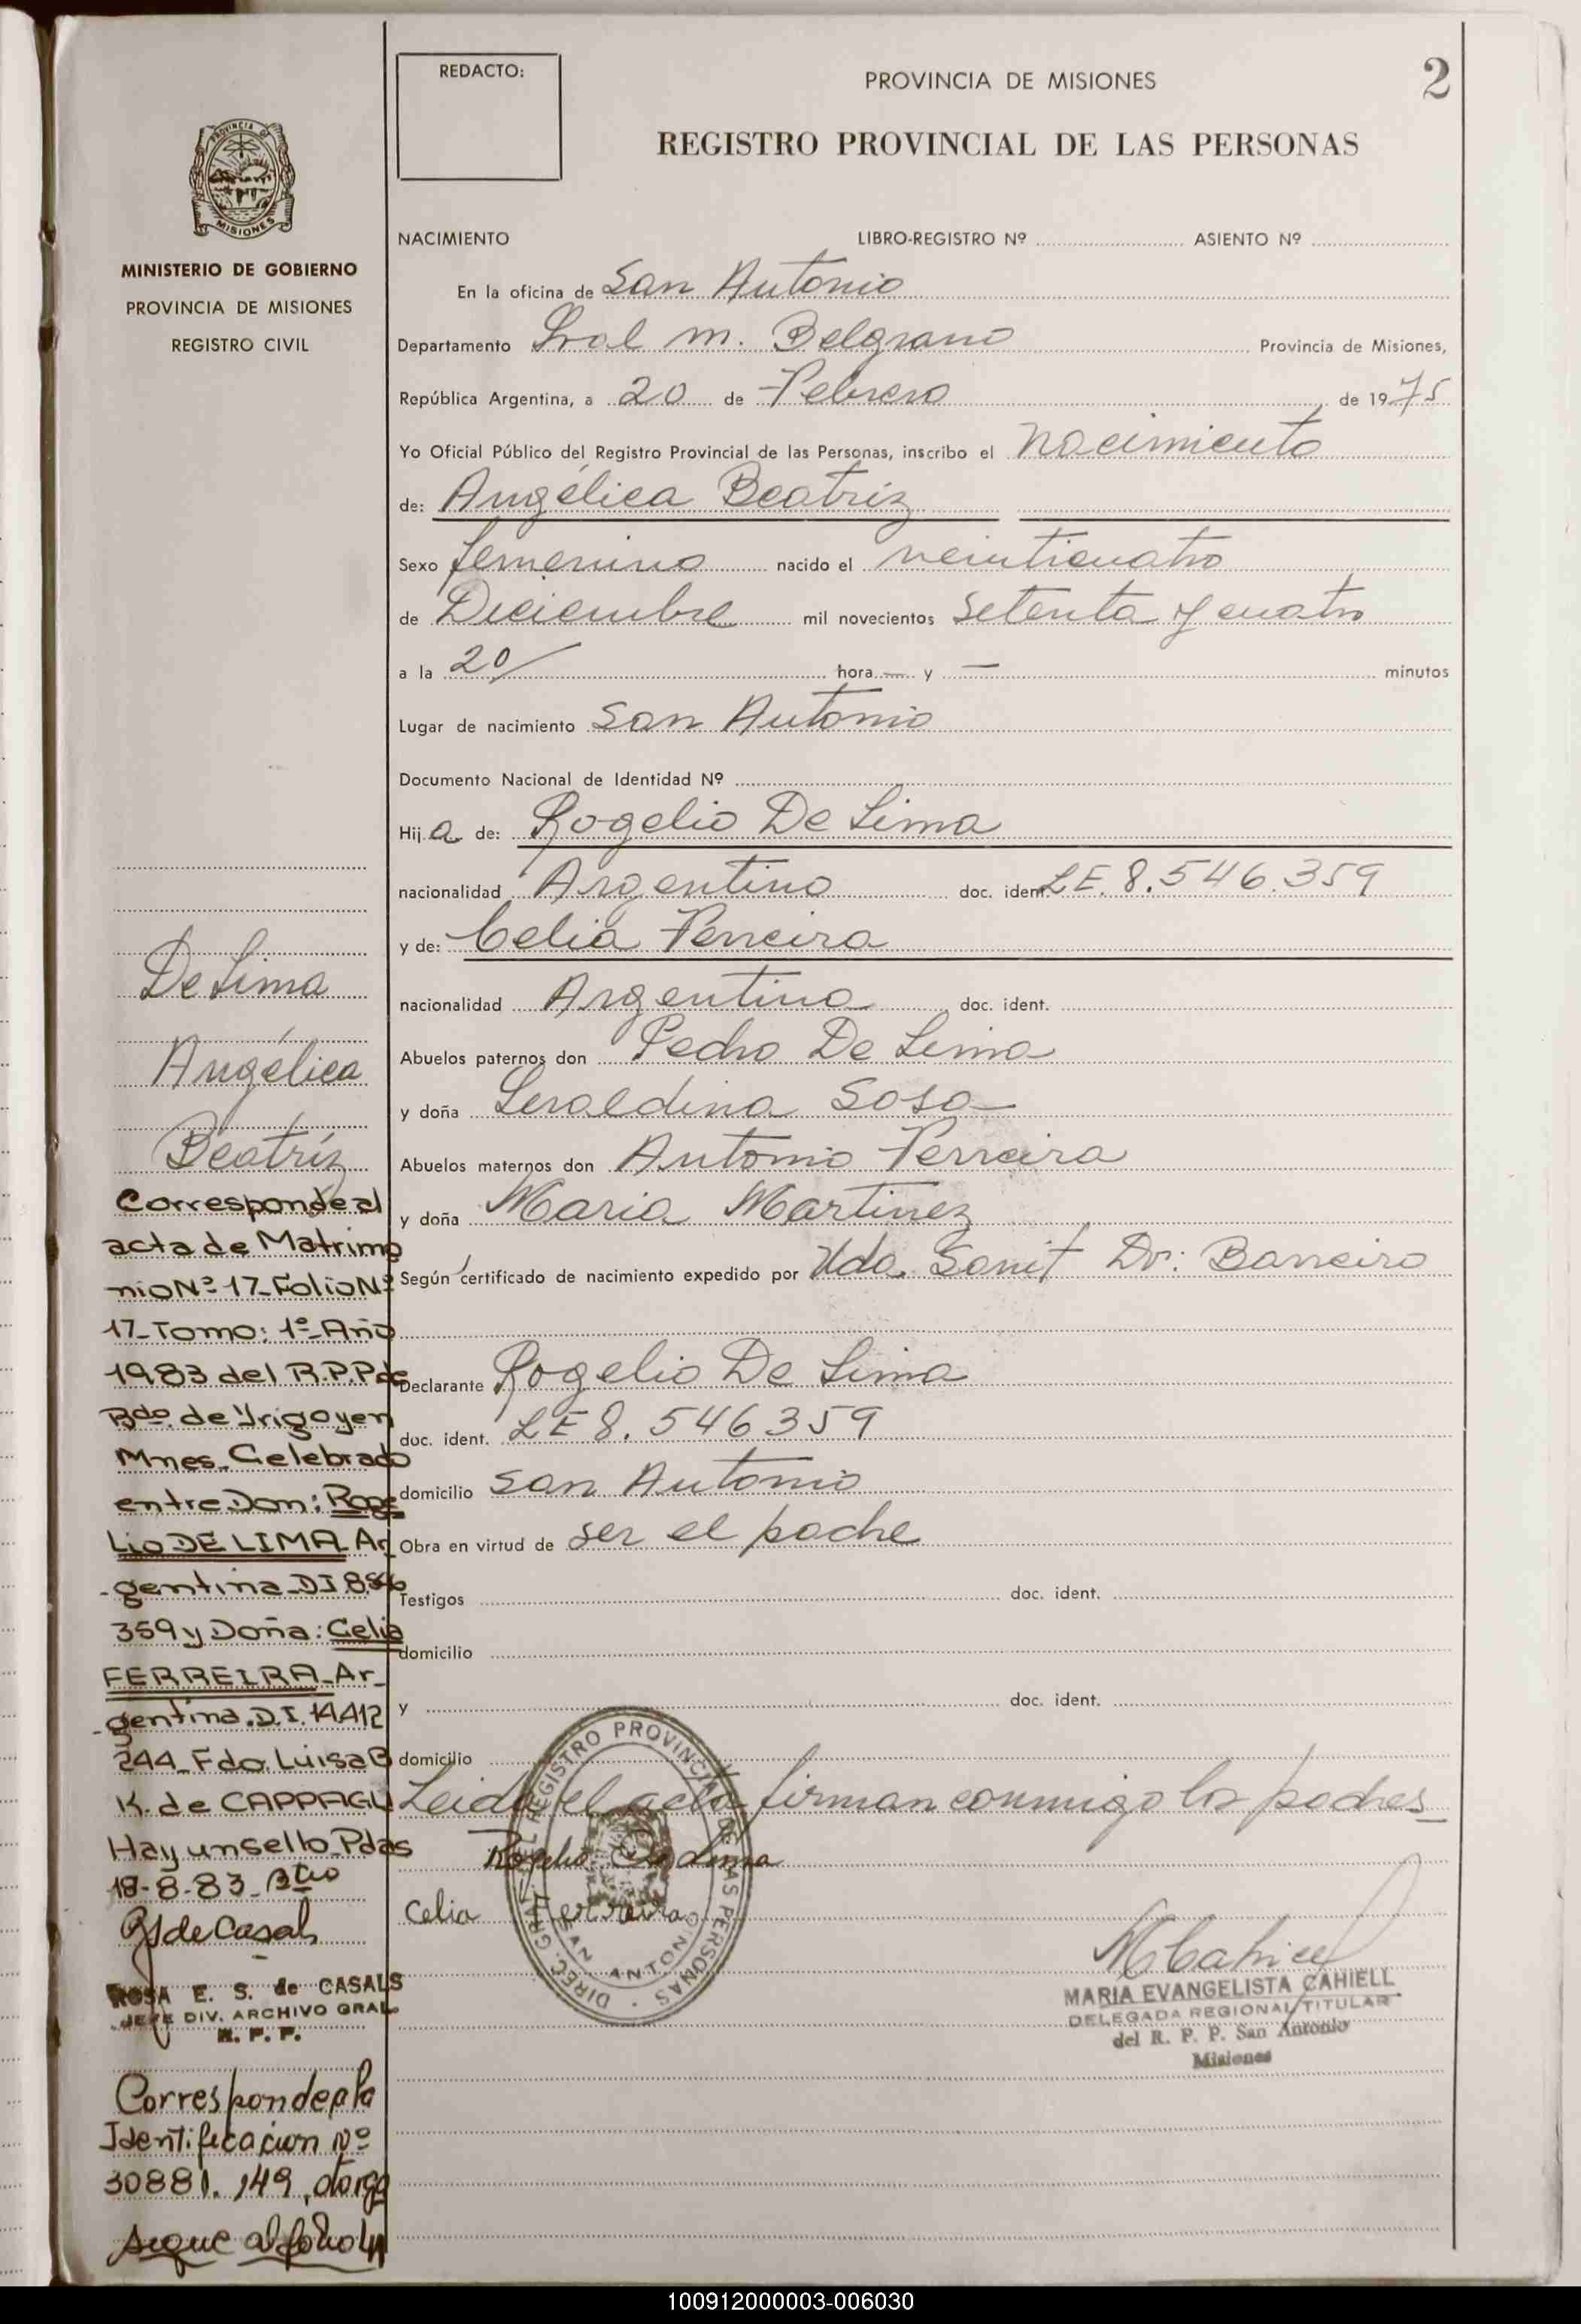 REDACTO:
PROVINCIA DE MISIONES
2
REGISTRO PROVINCIAL DE LAS PERSONAS
PROVINCIA D
MISIONES
MINISTERIO DE GOBIERNO
PROVINCIA DE MISIONES
REGISTRO CIVIL
NACIMIENTO LIBRO-REGISTRO Nº ASIENTO Nº
En la oficina de San Antonio
Departamento Gral M. Belgrano Provincia de Misiones,
República Argentina, a 20 de Febrero de 1975
Yo Oficial Público del Registro Provincial de las Personas, inscribo el Nacimiento
de: Angélica Beatriz
Sexo femenino nacido el veinticuatro
de Diciembre mil novecientos Setenta y cuatro
a la 20/ hora — y — minutos
Lugar de nacimiento San Antonio
Documento Nacional de Identidad Nº
Hij a de: Rogelio De Lima
nacionalidad Argentino doc. ident. L.E. 8.546.359
y de: Celia Ferreira
nacionalidad Argentina doc. ident.
Abuelos paternos don Pedro De Lima
y doña Geraldina Sosa
Abuelos maternos don Antonio Ferreira
y doña Maria Martinez
Según certificado de nacimiento expedido por Uda. Sanit Dr: Barreiro
Declarante Rogelio De Lima
doc. ident. LE 8.546359
domicilio San Antonio
Obra en virtud de ser el padre
Testigos doc. ident.
domicilio
y doc. ident.
domicilio
Leida el acta firman conmigo los padres
Rogelio De Lima
Celia Ferreira
DIREC. GRAL. DEL REGISTRO PROVINCIAL DE LAS PERSONAS
SAN ANTONIO
MARIA EVANGELISTA CAHIELL
DELEGADA REGIONAL TITULAR
del R. P. P. San Antonio
Misiones
De Lima
Angélica
Beatríz
Corresponde al
acta de Matrimo
nio Nº 17-Folio Nº
17-Tomo: 1º-Año
1983 del R.P.P de
Bdo. de Yrigoyen
Mnes. Celebrado
entre Don: Roge
Lio DE LIMA Ar
gentina D.I 8.546
359 y Doña: Celia
FERREIRA-Ar
gentina. D.I. 14.412
244_Fdo. Luisa B
K. de CAPPAGU
Hay un sello Pdas
18-8-83
RS de Casals
ROSA E. S. de CASALS
JEFE DIV. ARCHIVO GRAL
R. P. P.
Corresponde a la
Identificacion Nº
30881.149, otorga
sigue al folio 4
100912000003-006030